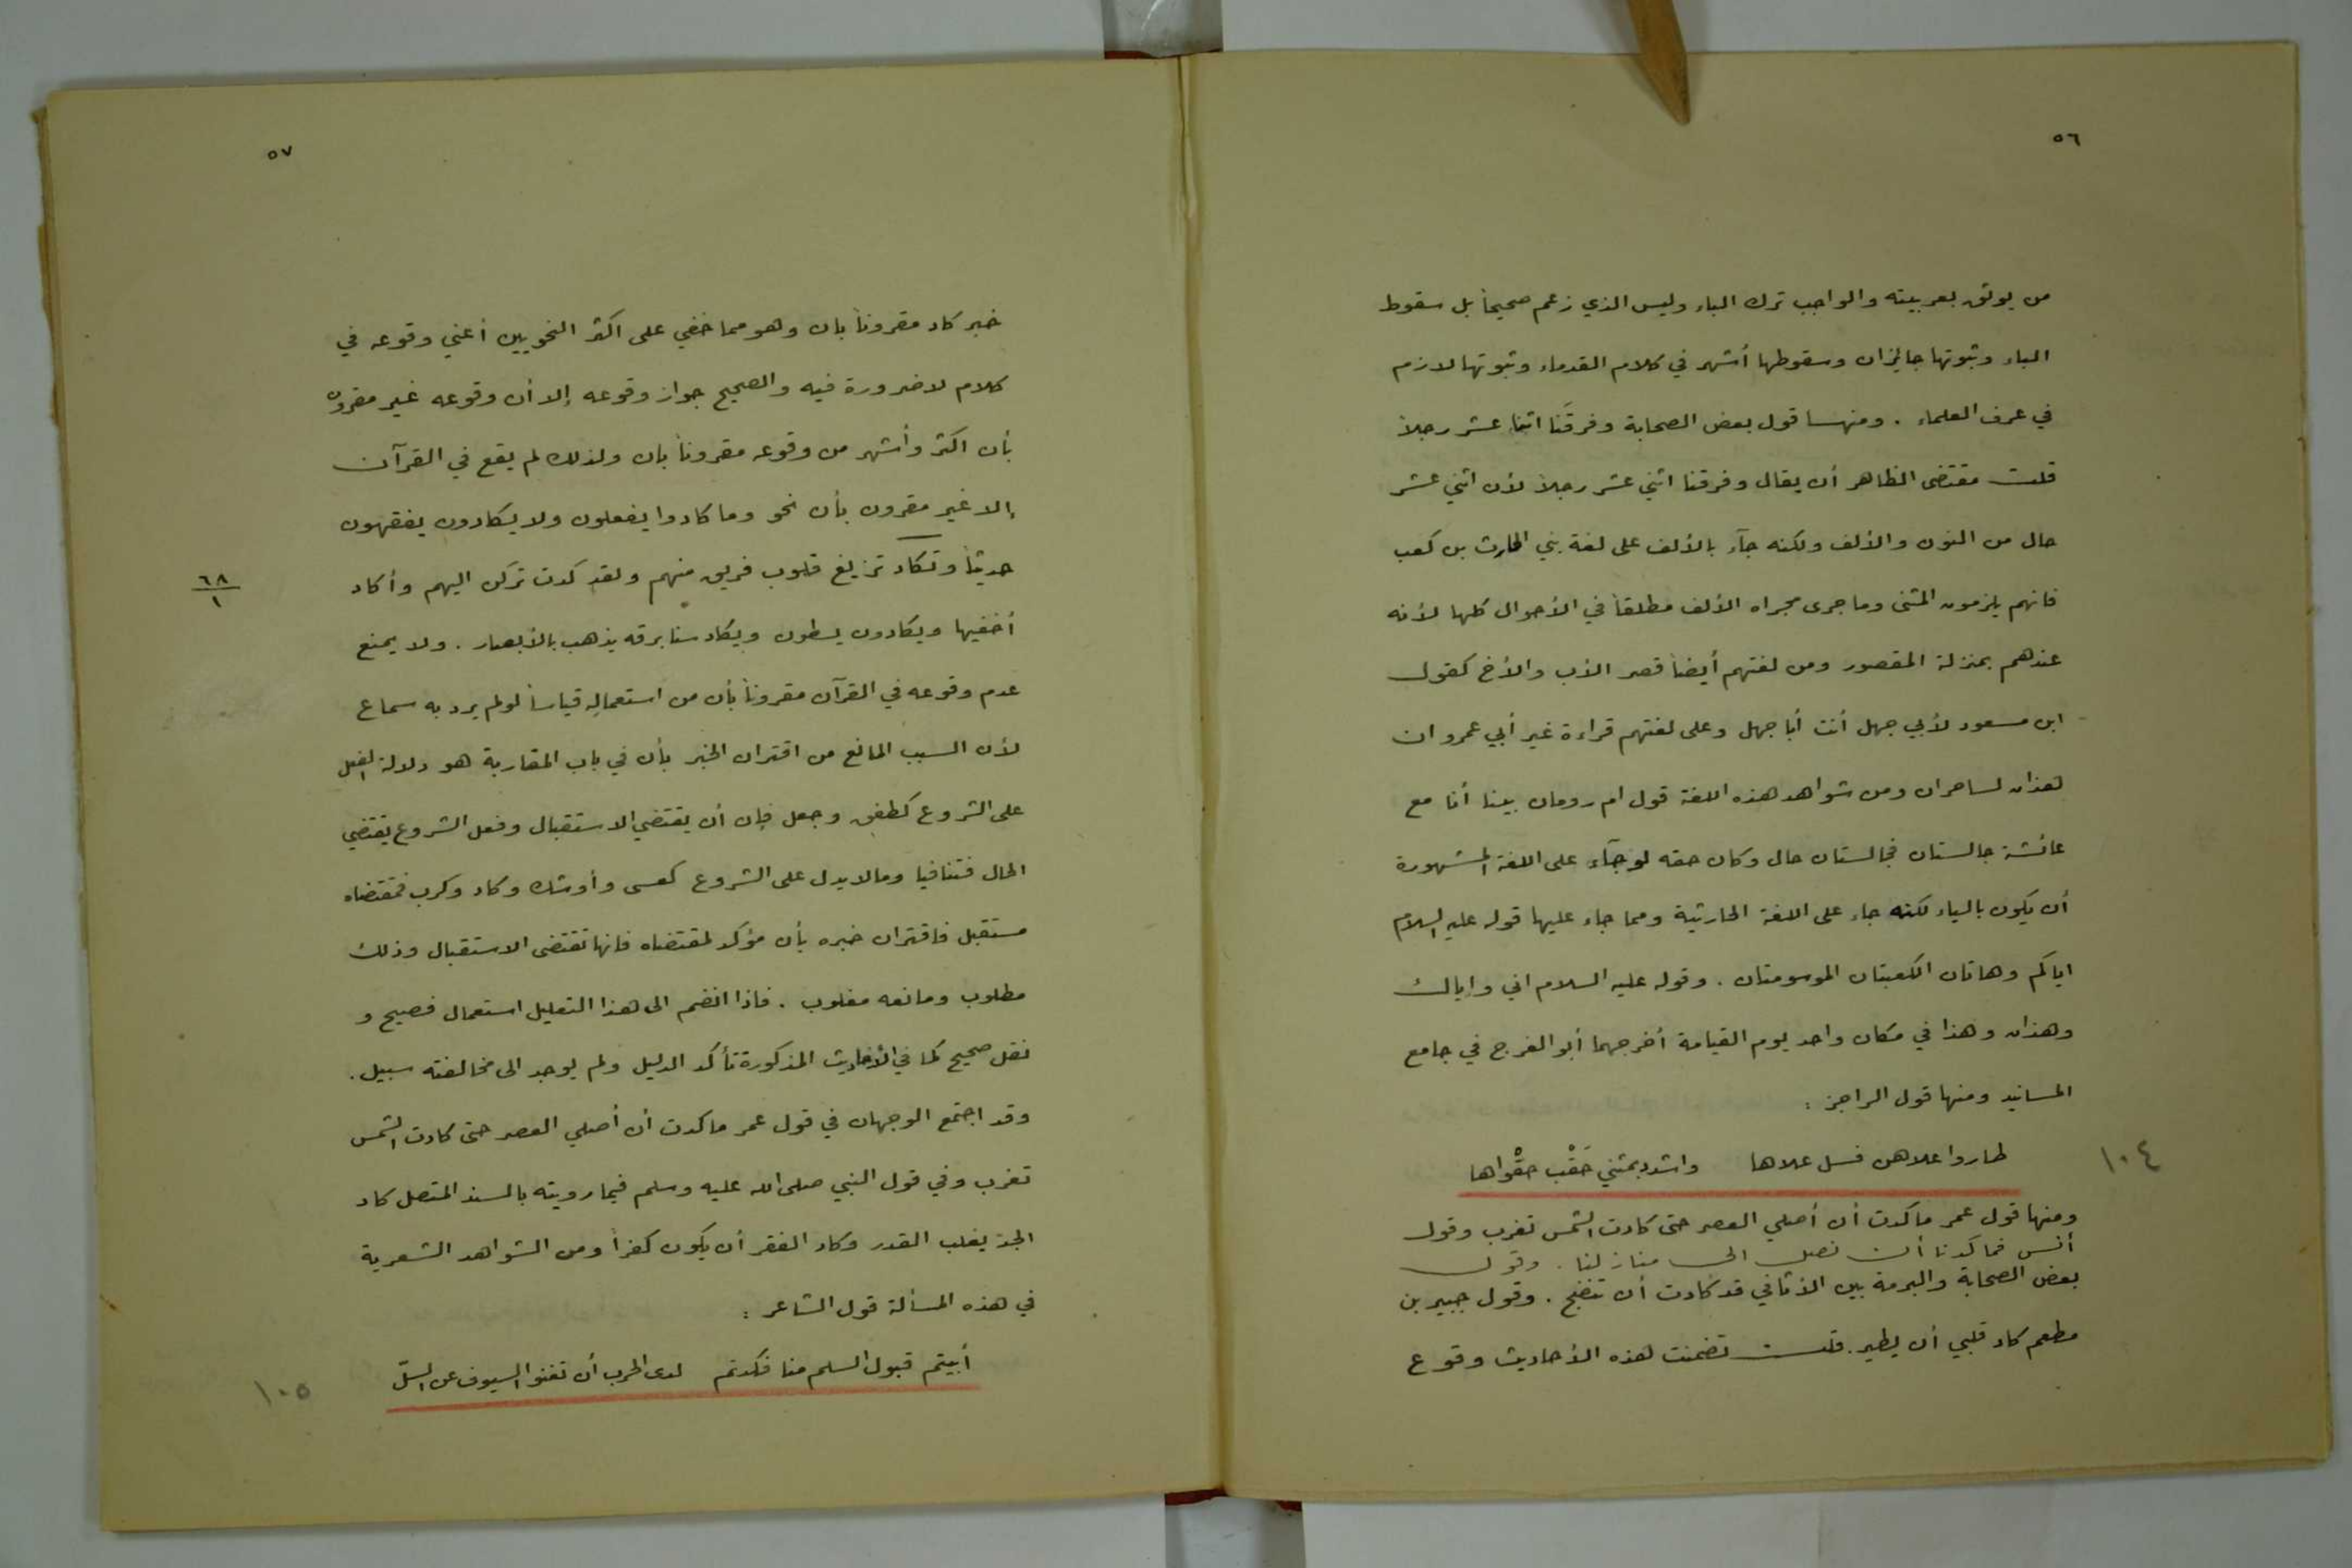 ٥٦
من يوثق بعربيته والواجب ترك الباء وليس الذي زعم صحيحاً بل سقوط
الباء وثبوتها جائزان وسقوطها أشهر في كلام القدماء وثبوتها لازم
في عرف العلماء . ومنها قول بعض الصحابة وفرقَنا اثنا عشر رجلاً
قلت مقتضى الظاهر أن يقال وفرقنا اثني عشر رجلاً لأن اثني عشر
حال من النون والألف ولكنه جآء بالألف على لغة بني الحارث بن كعب
فانهم يلزمون المثنى وما جرى مجراه الألف مطلقاً في الأحوال كلها لأنه
عندهم بمنزلة المقصور ومن لغتهم أيضاً قصر الأب والأخ كقول
ابن مسعود لأبي جهل أنت أبا جهل وعلى لغتهم قراءة غير أبي عمرو ان
هذان لساحران ومن شواهد هذه اللغة قول ام رومان بينا أنا مع
عائشة جالستان فجالستان حال وكان حقه لو جآء على اللغة المشهورة
أن يكون بالياء لكنه جاء على اللغة الحارثية ومما جاء عليها قوله عليه السلام
اياكم وهاتان الكعبتان الموسومتان . وقوله عليه السلام اني واياك
وهذان وهذا في مكان واحد يوم القيامة أخرجهما أبو الفرج في جامع
المسانيد ومنها قول الراجز :
طاروا علاهن فسل علاها واشدد بمثني حَقْب حقْواها ١٠٤
ومنها قول عمر ما كدت أن أصلي العصر حتى كادت الشمس تغرب وقول
أنس فما كدنا أن نصل الى منازلنا . وقول
بعض الصحابة والبرمة بين الأثافي قد كادت أن تنضج . وقول جبير بن
مطعم كاد قلبي أن يطير . قلت تضمنت هذه الأحاديث وقوع
٥٧
خبر كاد مقروناً بان وهو مما خفي على اكثر النحويين أعني وقوعه في
كلام لا ضرورة فيه والصحيح جواز وقوعه إلا أن وقوعه غير مقرون
بأن اكثر وأشهر من وقوعه مقروناً بان ولذلك لم يقع في القرآن
إلا غير مقرون بأن نحو وما كادوا يفعلون ولا يكادون يفقهون
حديثاً وتكاد تزيغ قلوب فريق منهم ولقد كدت تركن اليهم وأكاد ٦٨/١
أخفيها ويكادون يسطون ويكاد سنا برقه يذهب بالأبصار . ولا يمنع
عدم وقوعه في القرآن مقروناً بأن من استعماله قياساً لو لم يرد به سماع
لأن السبب المانع من اقتران الخبر بأن في باب المقاربة هو دلالة الفعل
على الشروع كطفق وجعل فإن أن يقتضي الاستقبال وفعل الشروع يقتضي
الحال فتنافيا وما لا يدل على الشروع كعسى وأوشك وكاد وكرب فمقتضاه
مستقبل فاقتران خبره بأن مؤكد لمقتضاه فانها تقتضى الاستقبال وذلك
مطلوب ومانعه مغلوب . فاذا انضم الى هذا التعليل استعمال فصيح و
نقل صحيح كما في الأحاديث المذكورة تأكد الدليل ولم يوجد الى مخالفته سبيل .
وقد اجتمع الوجهان في قول عمر ما كدت أن أصلي العصر حتى كادت الشمس
تغرب وفي قول النبي صلى الله عليه وسلم فيما رويته بالسند المتصل كاد
الحذ يغلب القدر وكاد الفقر أن يكون كفراً ومن الشواهد الشعرية
في هذه المسألة قول الشاعر :
أبيتم قبول السلم منا فكدتم لدى الحرب أن تغنوا السيوف عن السلّ ١٠٥